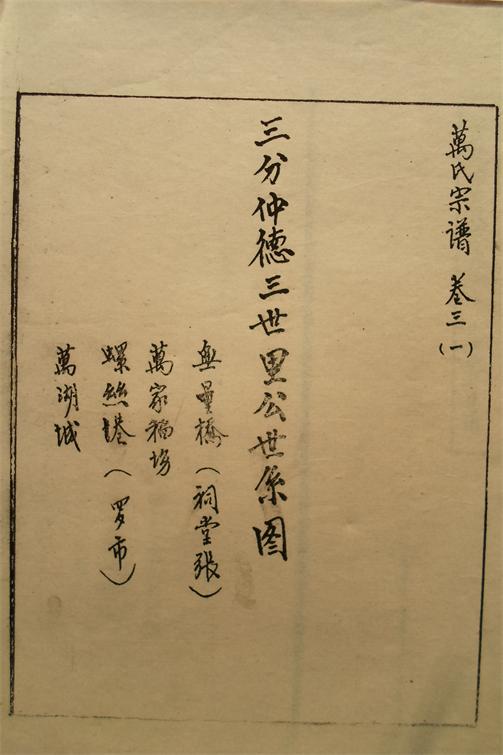 萬氏宗谱 卷三(一)
三分仲德三世里公世系图
無量橋(祠堂張)
萬家稻场
螺絲港(罗市)
萬湖城